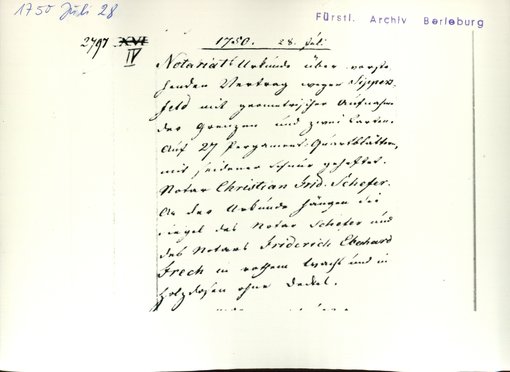 1750 Juli 28
Fürstl. Archiv Berleburg
2797 XVI 1750. 28. Juli
IV
Notariats Urkunde über vorste
henden Vertrag wegen
feld mit geometrischer Aufnahm
der Grenzen und zwei Carten.
Auf 27 Pergament-Quartblättern,
mit seidener Schnur geheftet.
Notar Christian Frid. Schefer.
An der Urkunde hängen die
Siegel des Notar Schefer und
des Notars Friderich Eberhard
Frech in rothem Wachs und in
Holzdosen ohne Deckel.